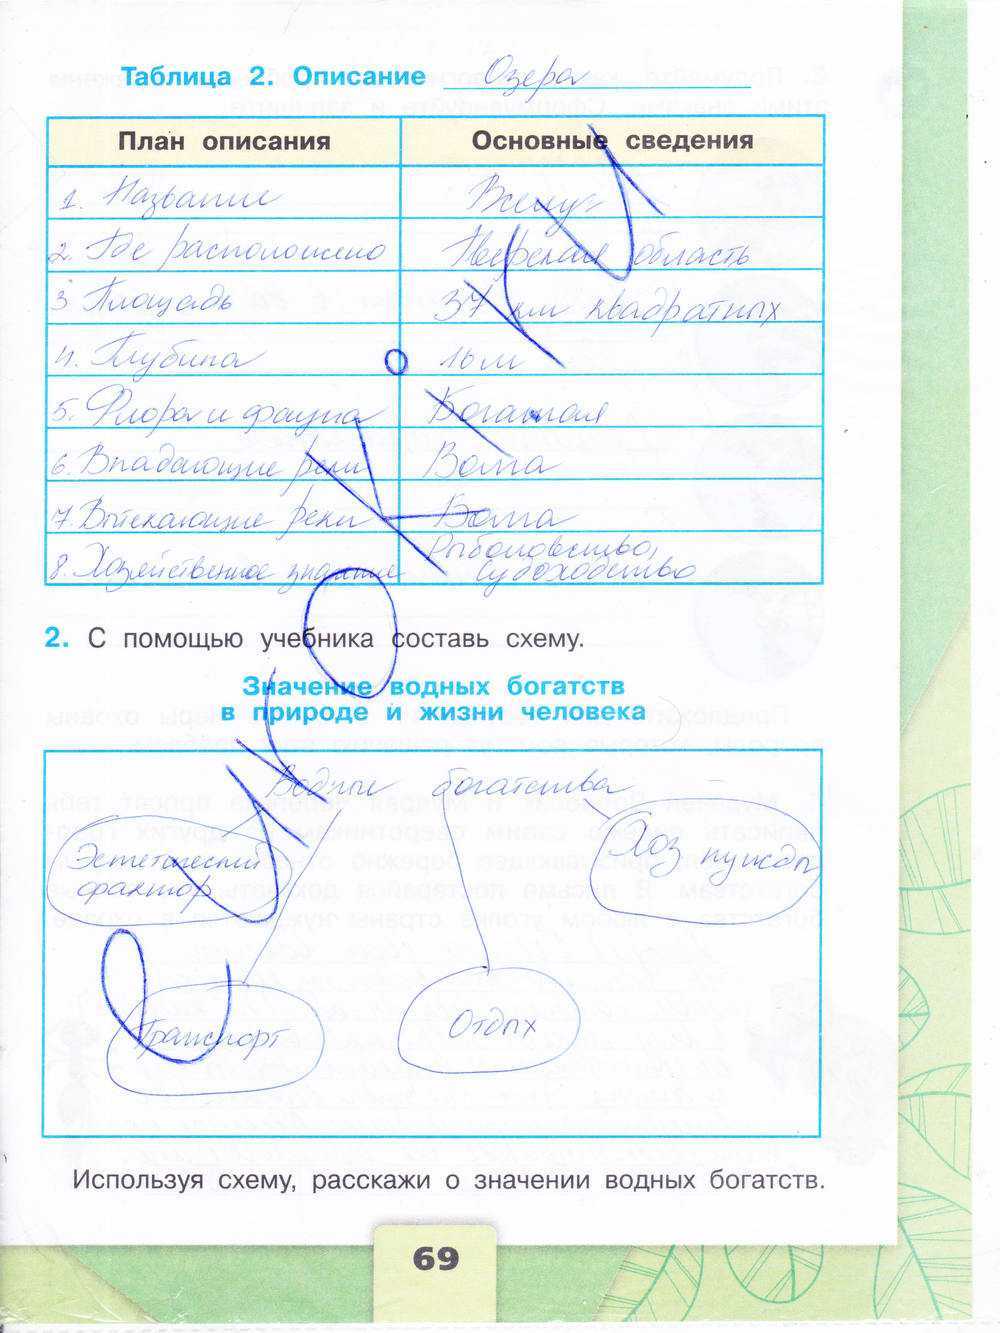 Таблица 2. Описание Озера
План описания Основные сведения
1. Название Вселуг
2. Где расположено Тверская область
3 Площадь 37 км квадратных
4. Глубина 16 м
5. Флора и фауна Богатая
6. Впадающие реки Волга
7. Вытекающие реки Волга
8. Хозяйственное значение Рыболовство,
Судоходство
2. С помощью учебника составь схему.
Значение водных богатств
в природе и жизни человека
Водные богатства
Эстетический
фактор
Хоз нужды
Транспорт
Отдых
Используя схему, расскажи о значении водных богатств.
69